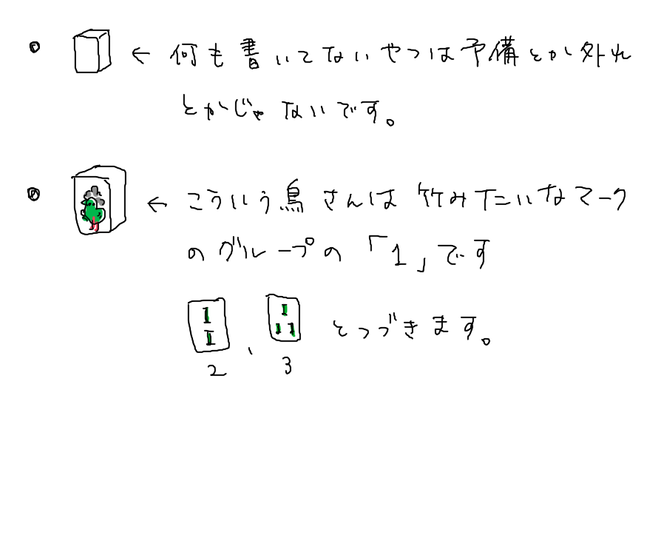 ← 何も書いてないやつは予備とか外れ
とかじゃないです。
← こういう鳥さんは竹みたいなマーク
のグループの「1」です
2、3 とつづきます。